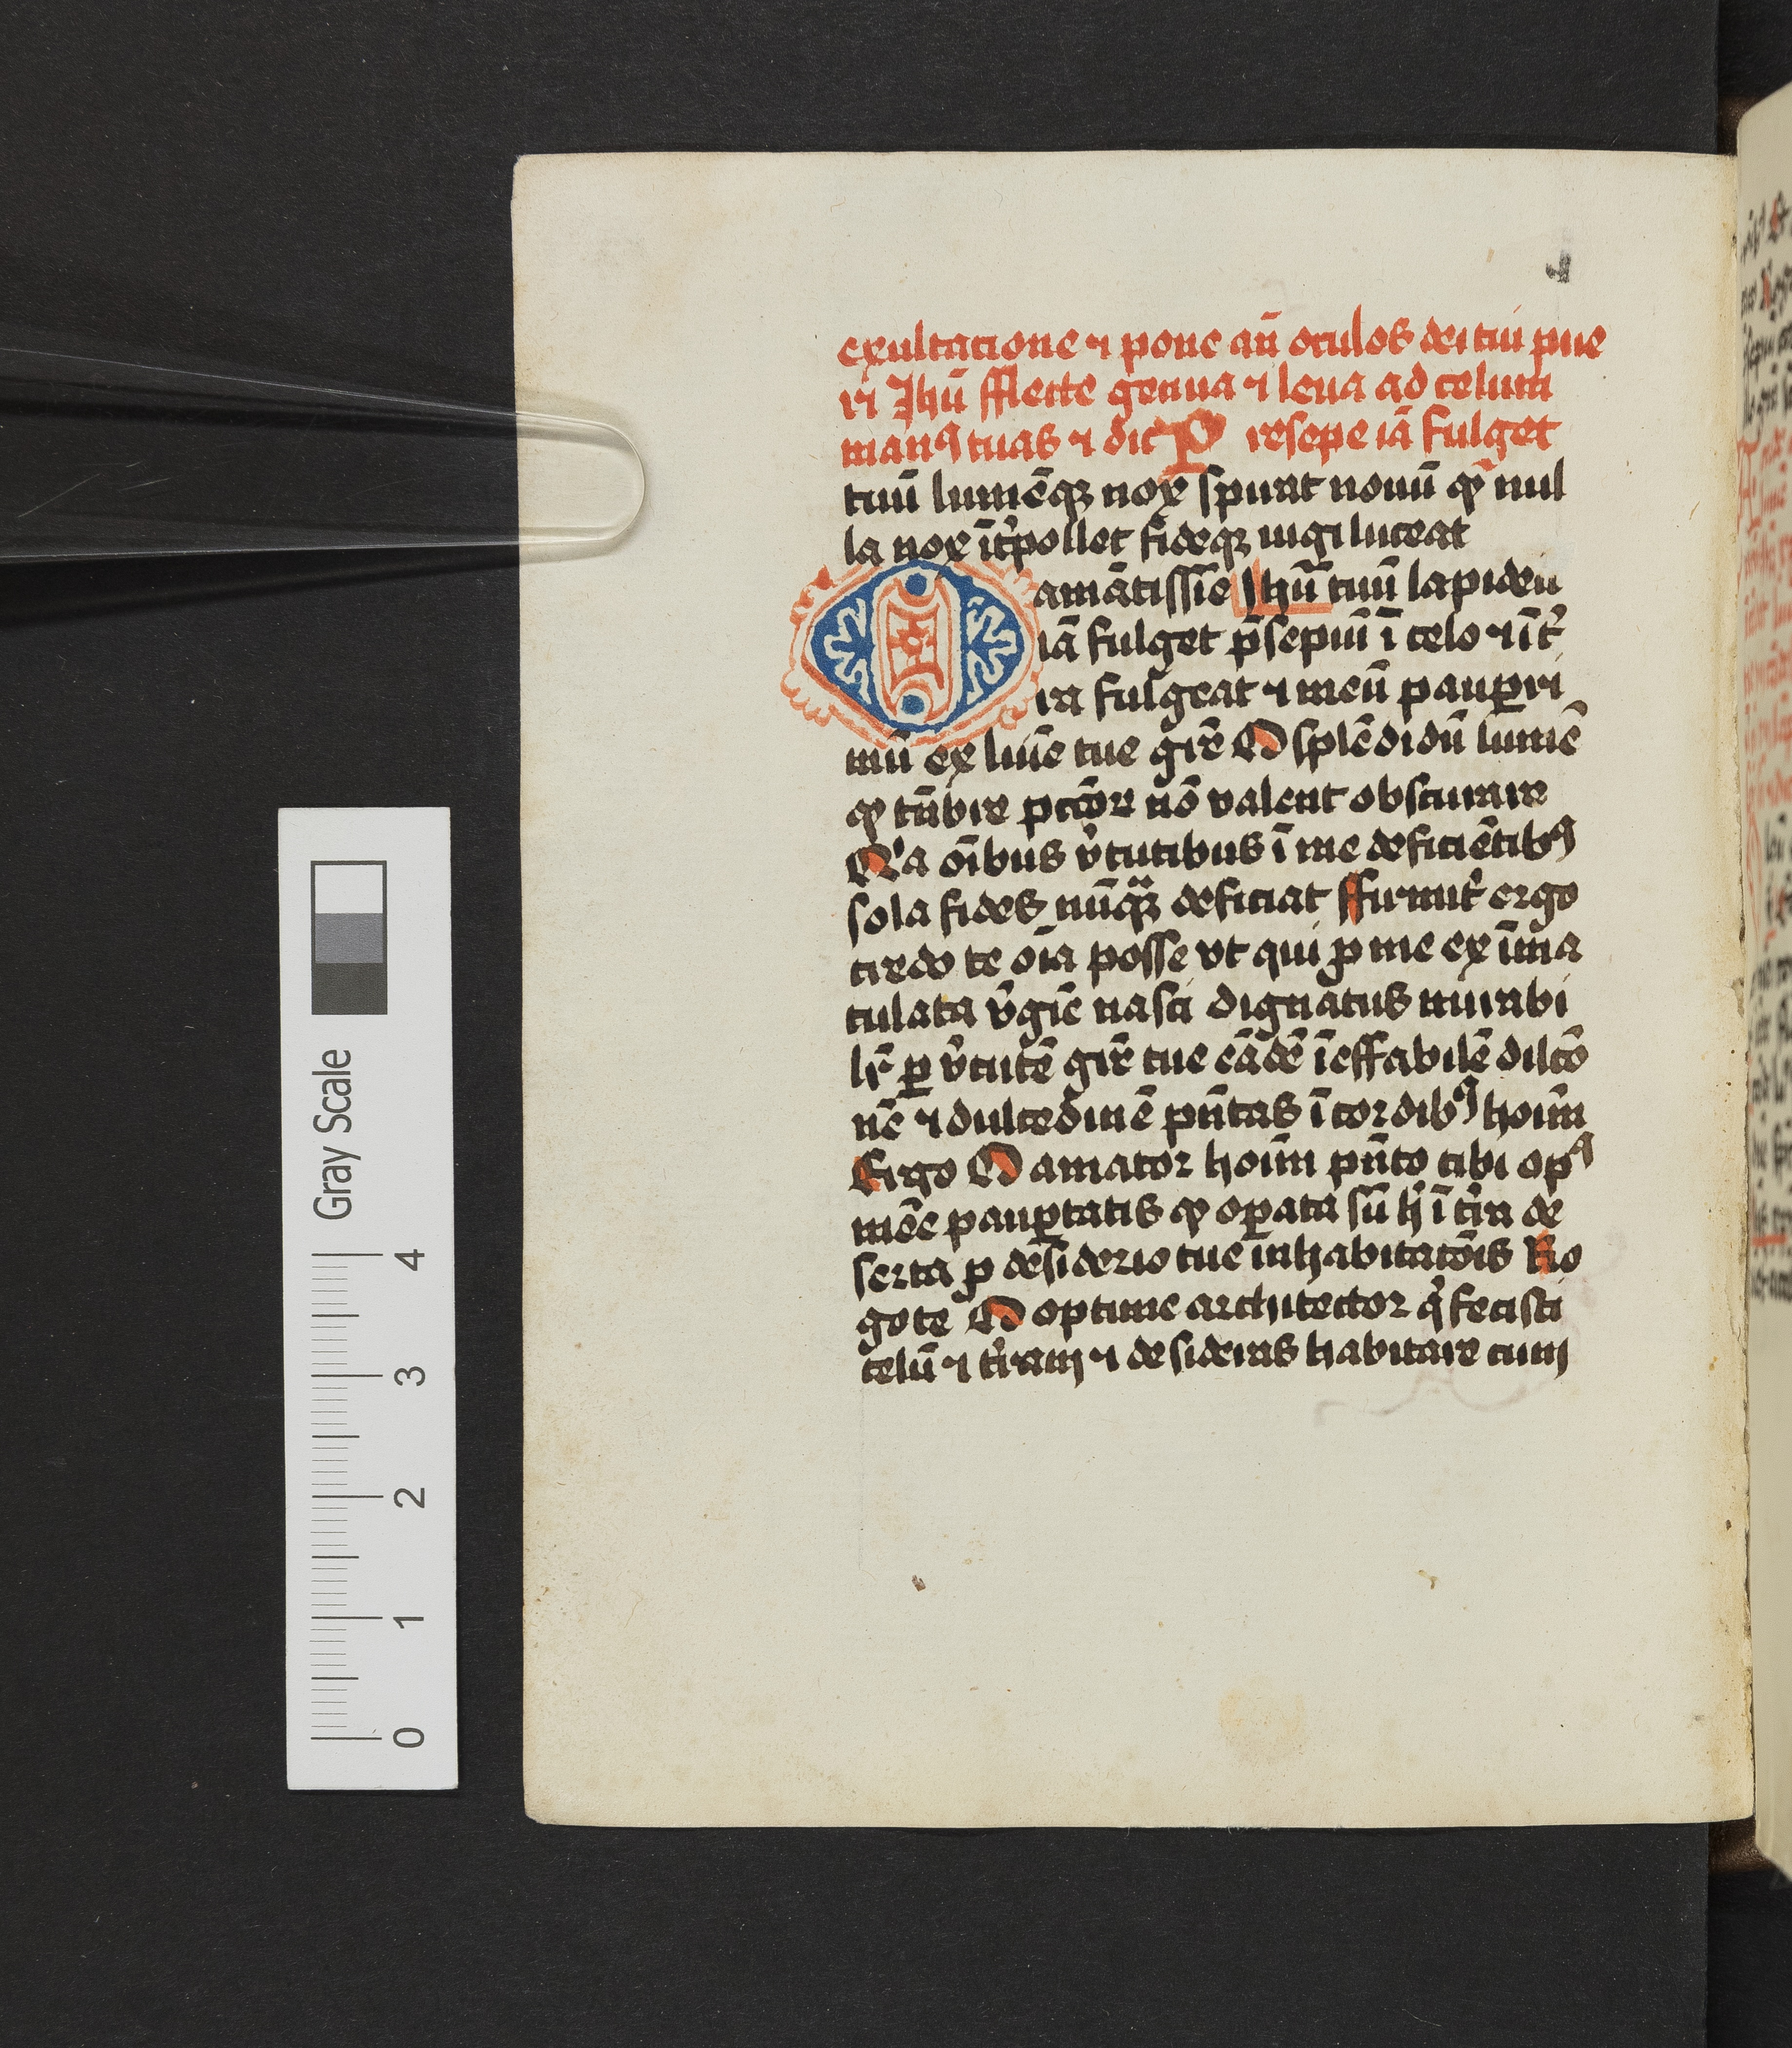 exultacione ⁊ pone an̄ oculos dei tui pue
ri Jhū fflecte genua ⁊ leua ad celum
manꝰ tuas ⁊ dic P resepe iā fulget
tuū lumēqꝫ nox spirat nouū qͦ nul
la nox īt̓pollet fideqꝫ iugi luceat
O amātissīe Ihū tuū lapideū
iā fulget p̄sepiū ī celo ⁊ īt̓
ra fulgeat ⁊ meū pauꝑri
mū ex luīe tue gr̄e O splēdidū lumē
qͦ tn̄bre pccōr nō valent obscurare
Qͥa oībus v̓tutibus ī me deficiētibꝰ
sola fides nūqͣꝫ deficiat ffirmit̓ ergo
credo te oīa posse vt qui ꝓ me ex īma
culata v̓gīe nasci dignatus mirabi
lr̄ ꝑ v̓tutē gr̄e tue eādē īeffabilē dilcō
nē ⁊ dulcedinē pn̄tas ī cordibꝰ hoīm
Ergo O amator hoīm pn̄to tibi opꝰ
mēe pauꝑtatis qͦ oꝑata sū hͨ ī tr̄a de
serta ꝓ desiderio tue inhabitatōis Ro
go te O optime architector qͥ fecisti
celū ⁊ t̓ram ⁊ desideras habitare cum
Gray Scale
0 1 2 3 4